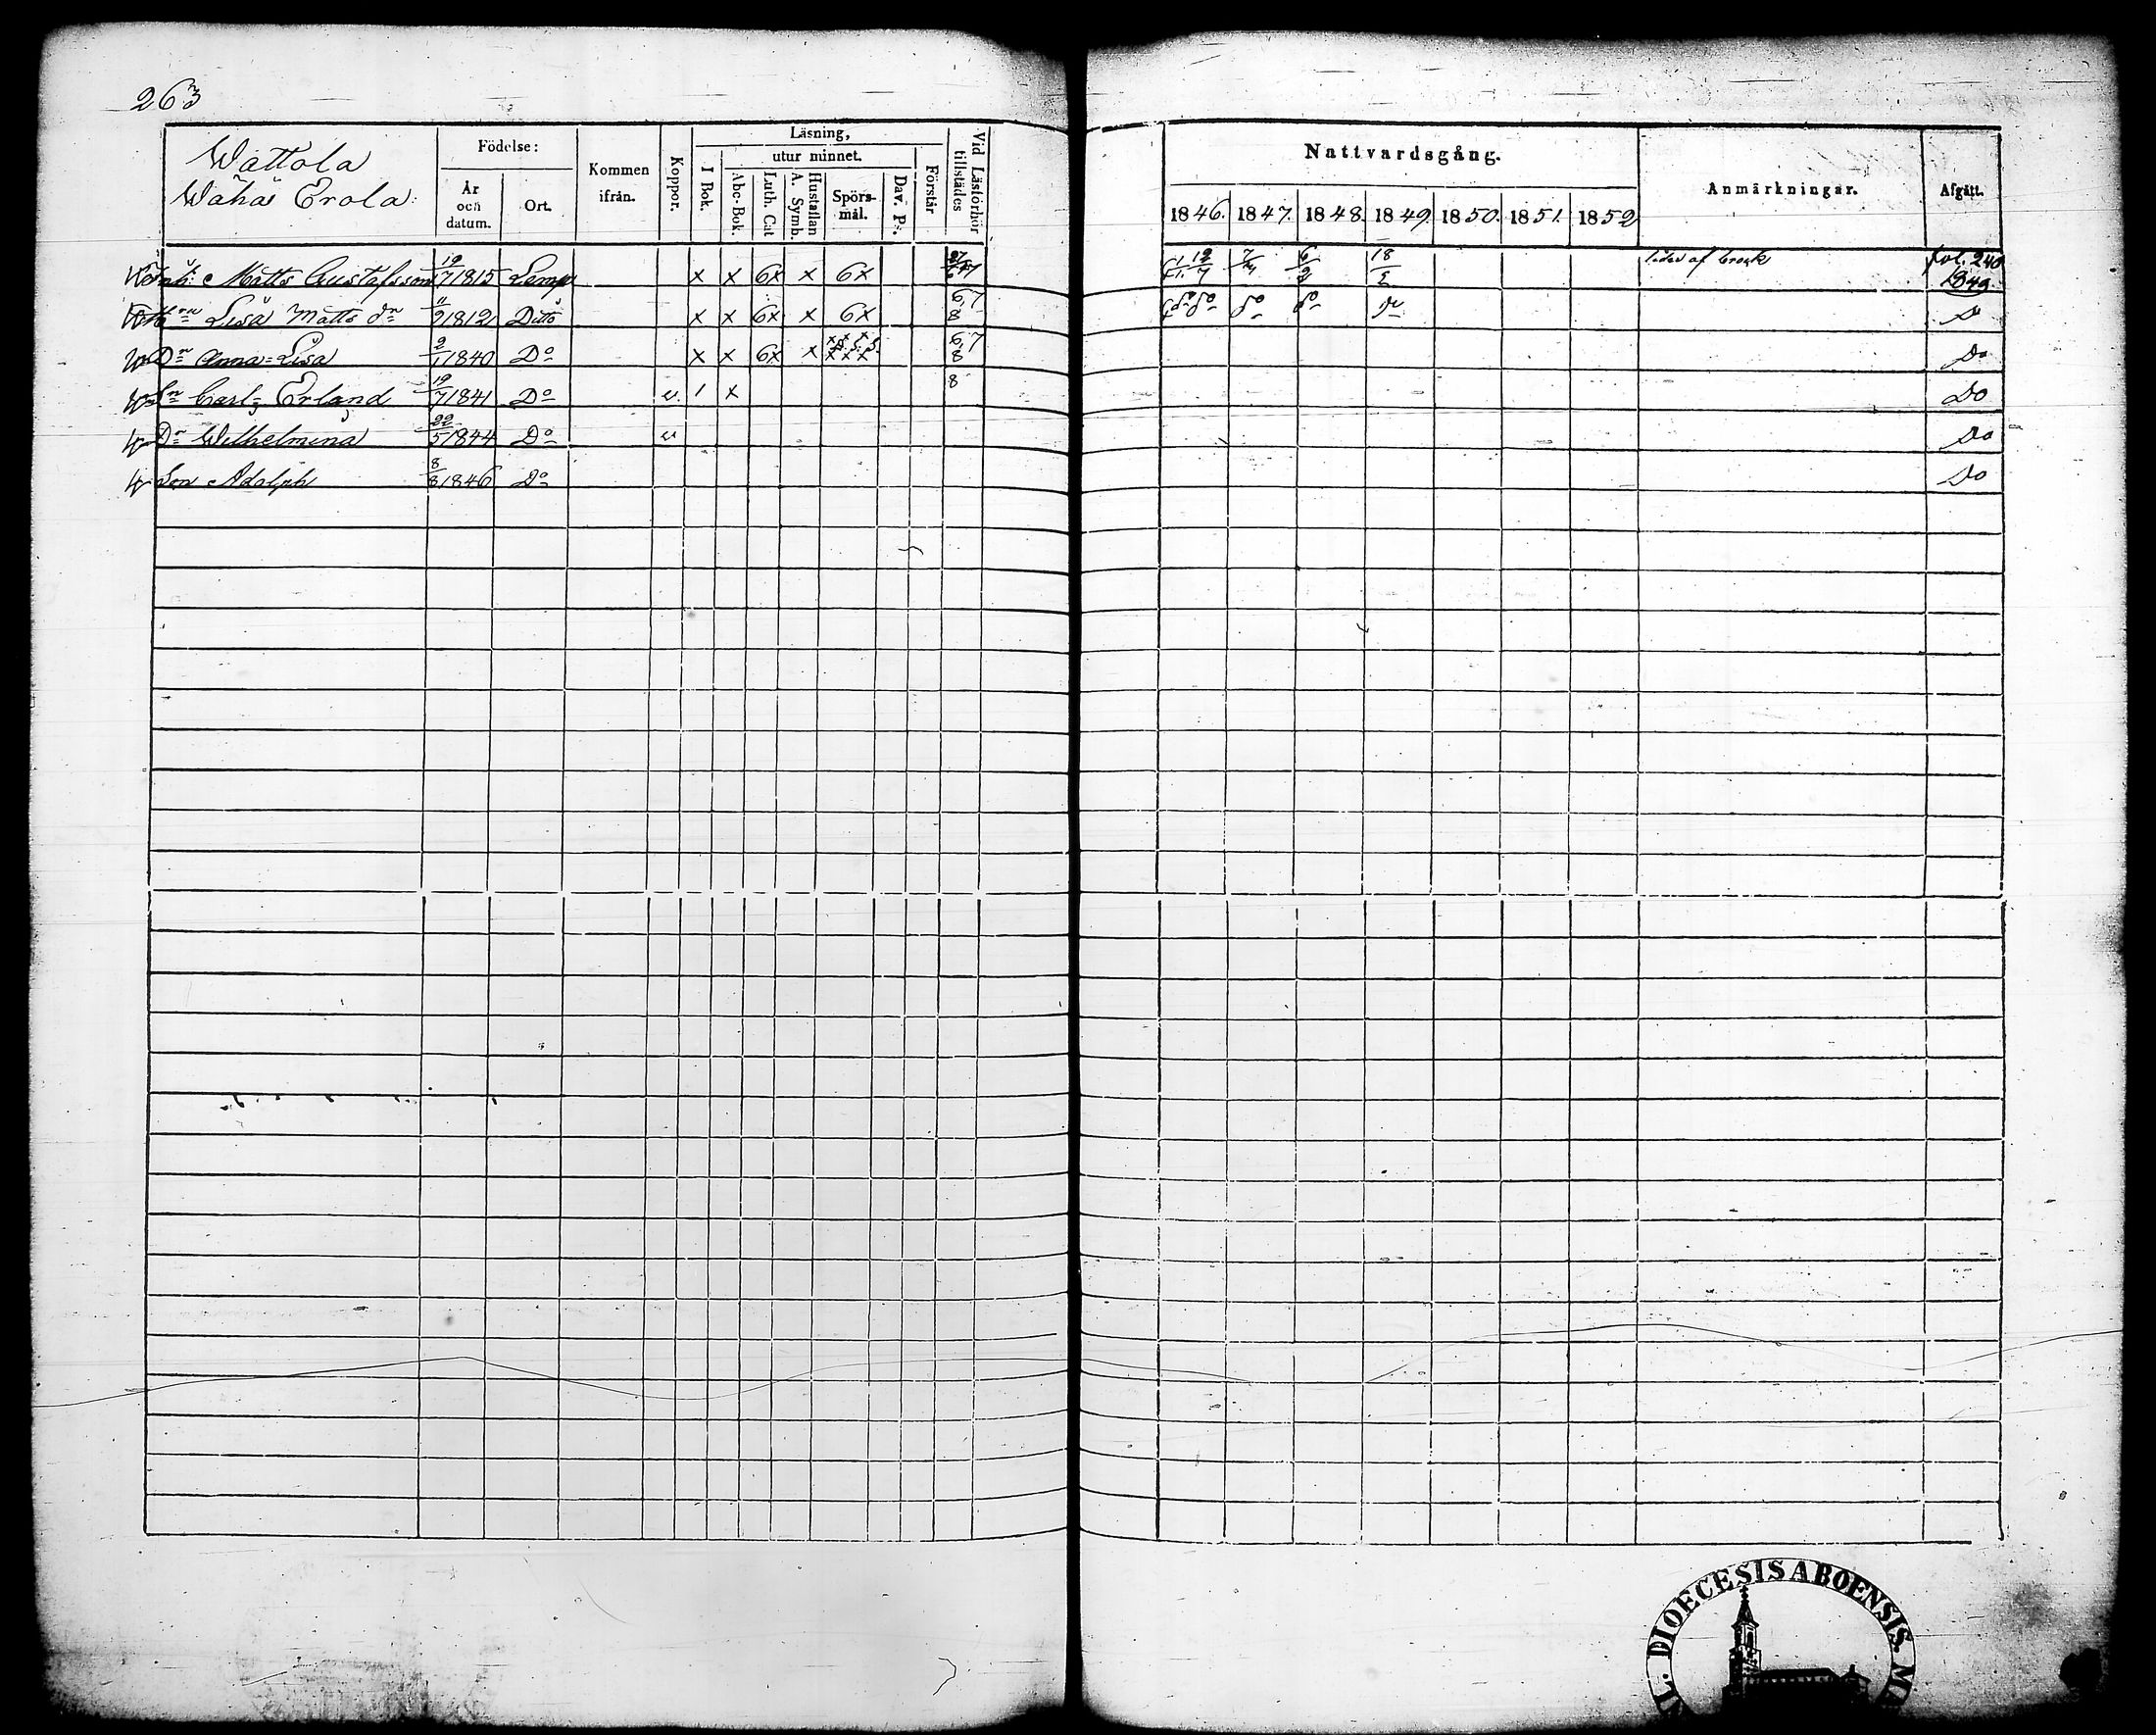 263
Wattola
Wähä Erola.
Födelse:
År och datum.
Ort.
Kommen ifrån.
Koppor.
Läsning,
I Bok.
utur minnet.
Abc-Bok.
Luth. Cat
Hustaflan A. Symb.
Spörsmål.
Dav. Ps.
Förstår
Vid Läsförhör tillstädes
Nattvardsgång.
1846. 1847. 1848. 1849. 1850. 1851. 1852
Anmärkningar.
Afgått.
Matts Gustafsson 19/7 1815 Lemp x x 6x x 6x 7/4 6/2 18 af bråck fol. 240 1849.
Lisa Matts dn 11/9 1812 Ditto x x 6x x 6x 6,7 8 Do
Dn Anna-Lisa 2/1 1840 Do x x 6x x 6,7 8 Do
Sn Carl Erland 19/7 1841 Do v. 1 x 8 Do
Dn Wilhelmina 22/5 1844 Do v Do
Son Adolph 8/8 1846 Do Do
DIOECESIS ABOENSIS